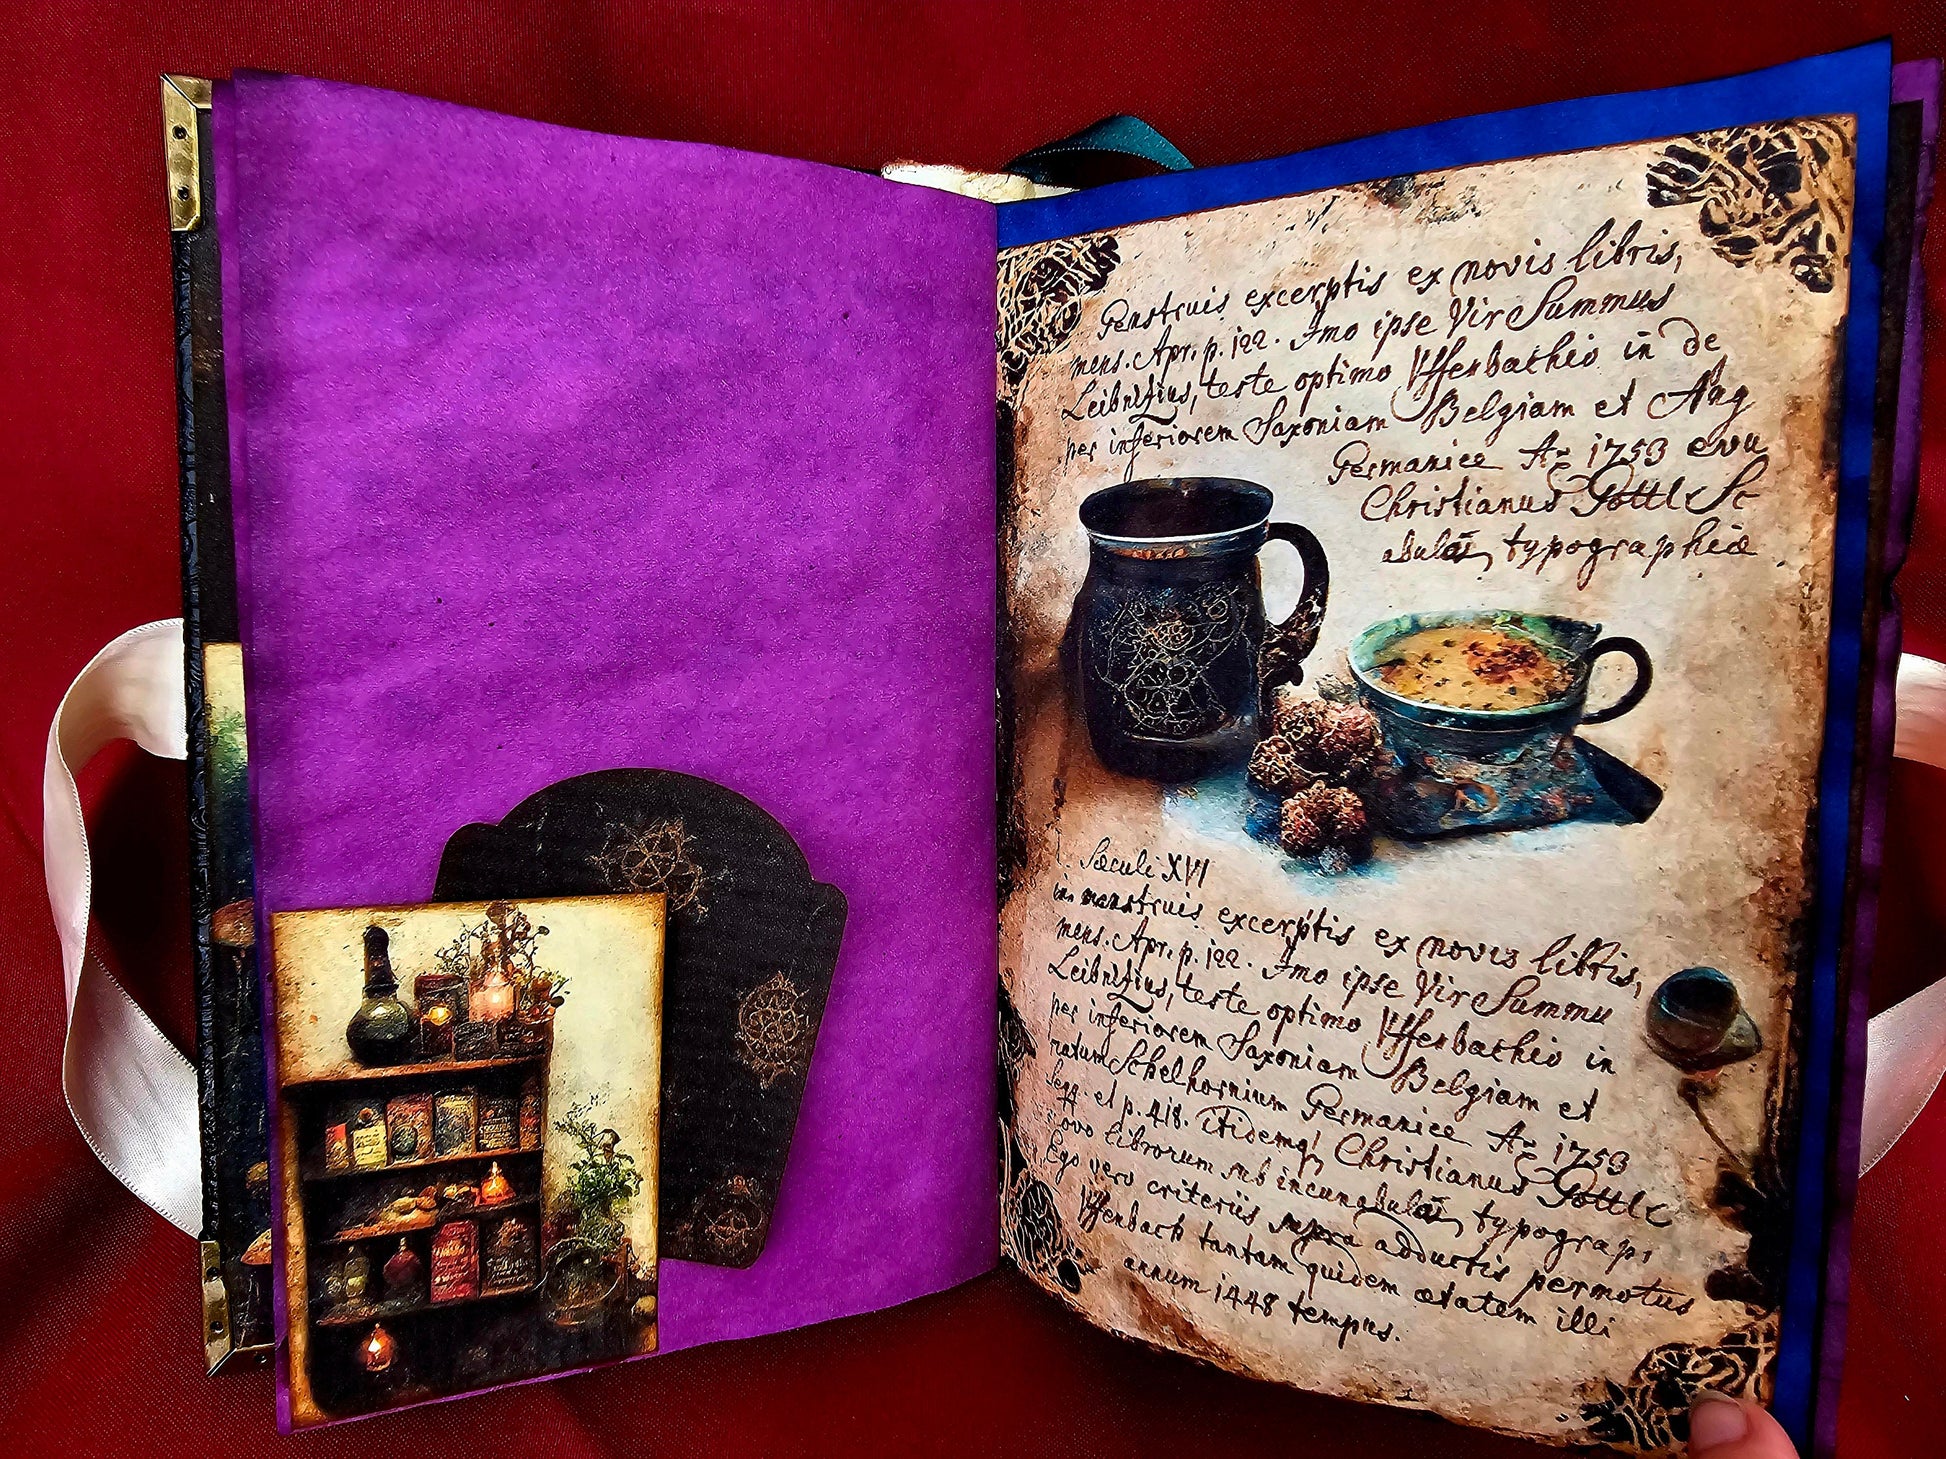 menstruis excerptis ex novis libris,
mens. Apr. p. 122. Imo ipse Vir Summus
Leibnitius, teste optimo Uffenbachio in de
per inferiorem Saxoniam Belgiam et Ang
Germaniee Ao 1753 evu
Christianus Gottl Sc
abulai, typographiæ
Sæculi XVI
in menstruis excerptis ex novis libris,
mens. Apr. p. 122. Imo ipse Vir Summu
Leibnitius, teste optimo Uffenbachio in
per inferiorem Saxoniam Belgiam et
ratum Schelhornium Germaniee Ao 1753
seqq. et p. 418. itidemq; Christianus Gottl
novo librorum sub incunabulai, typograp
Ego vero criteriis supra adductis permotus
Uffenbach tantam quidem ætatem illi
annum 1448 tempus.